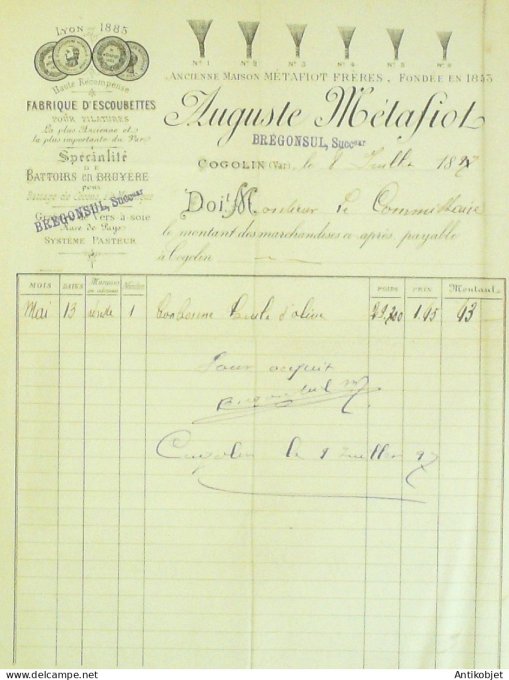 LYON 1885
Haute Récompense
FABRIQUE D'ESCOUBETTES
POUR FILATURES
La plus Ancienne et
la plus importante du Var
Spécialité
DE
BATTOIRS en BRUYÈRE
pour
BREGONSUL, Succeur
Vers à soie
Race de Pays
SYSTÈME PASTEUR
N° 1 N° 2 N° 3 N° 4 N° 5 N° 6
ANCIENNE MAISON MÉTAFIOT FRÈRES, FONDÉE EN 1853
Auguste Métafiot
BREGONSUL, Succeur
COGOLIN (Var), le 8 Juillet 1897
Doit Monsieur le Commissaire
le montant des marchandises ci-après, payable
à Cogolin
MOIS DATES Marques en adresses Nombre POIDS PRIX Montant
Mai 13 1 bonbonne huile d'olive 1.95 93
Pour acquit
Cogolin le 8 Juillet 97
Antikobjet.com